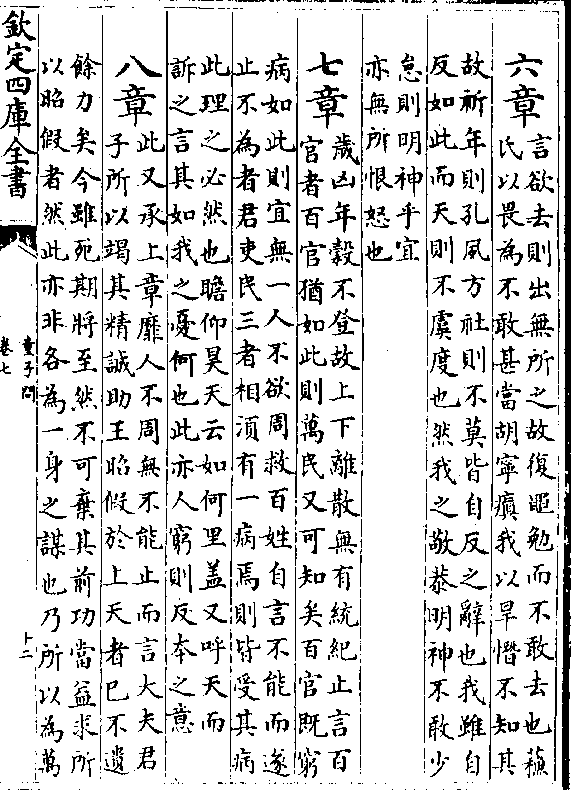 六章言欲去則出無所之故復黽勉而不敢去也蘇
氏以畏為不敢甚當胡寧瘨我以旱憯不知其
故祈年則孔夙方社則不莫皆自反之辭也我雖自
反如此而天則不虞度也然我之敬恭明神不敢少
怠則明神乎宜
亦無所恨怒也
七章歲凶年穀不登故上下離散無有統紀止言百
官者百官猶如此則萬民又可知矣百官既窮
病如此則宜無一人不欲周救百姓自言不能而遂
止不為者君吏民三者相湏有一病焉則皆受其病
此理之必然也瞻仰昊天云如何里盖又呼天而
訴之言其如我之憂何也此亦人窮則反本之意
八章此又承上章靡人不周無不能止而言大夫君
子所以竭其精誠助王昭假於上天者已不遺
餘力矣今雖死期將至然不可棄其前功當益求所
以昭假者然此亦非各為一身之謀也乃所以為萬
欽定四庫全書
童子問
卷七
十二